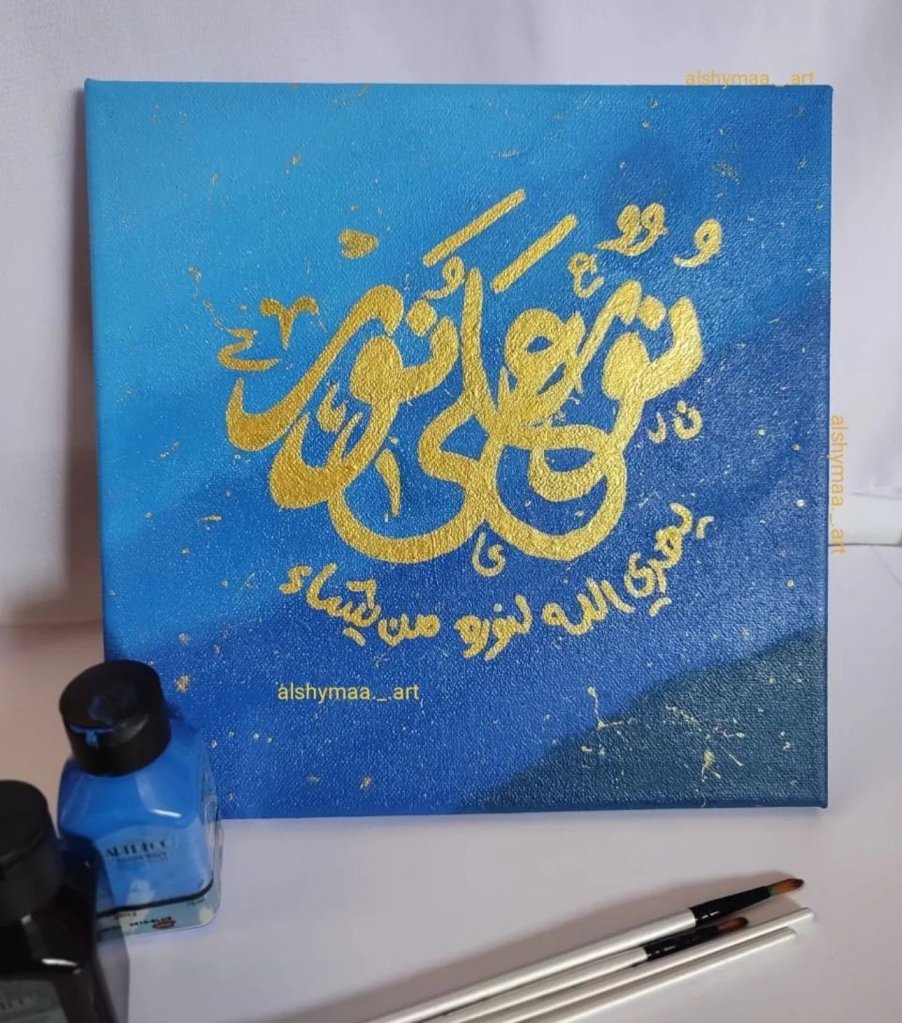 alshymaa._.art
نُورٌ عَلَى نُورٍ
يهدي الله لنوره من يشاء
alshymaa._.art
alshymaa._.art